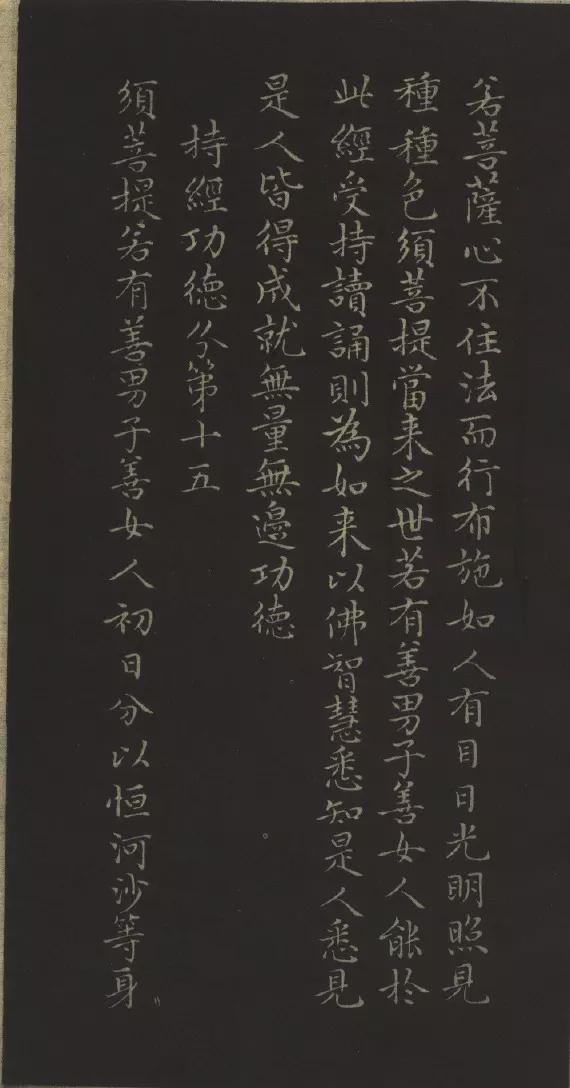 若菩薩心不住法而行布施如人有目日光明照見
種種色須菩提當来之世若有善男子善女人能於
此經受持讀誦則為如来以佛智慧悉知是人悉見
是人皆得成就無量無邊功德
持經功德分第十五
須菩提若有善男子善女人初日分以恒河沙等身